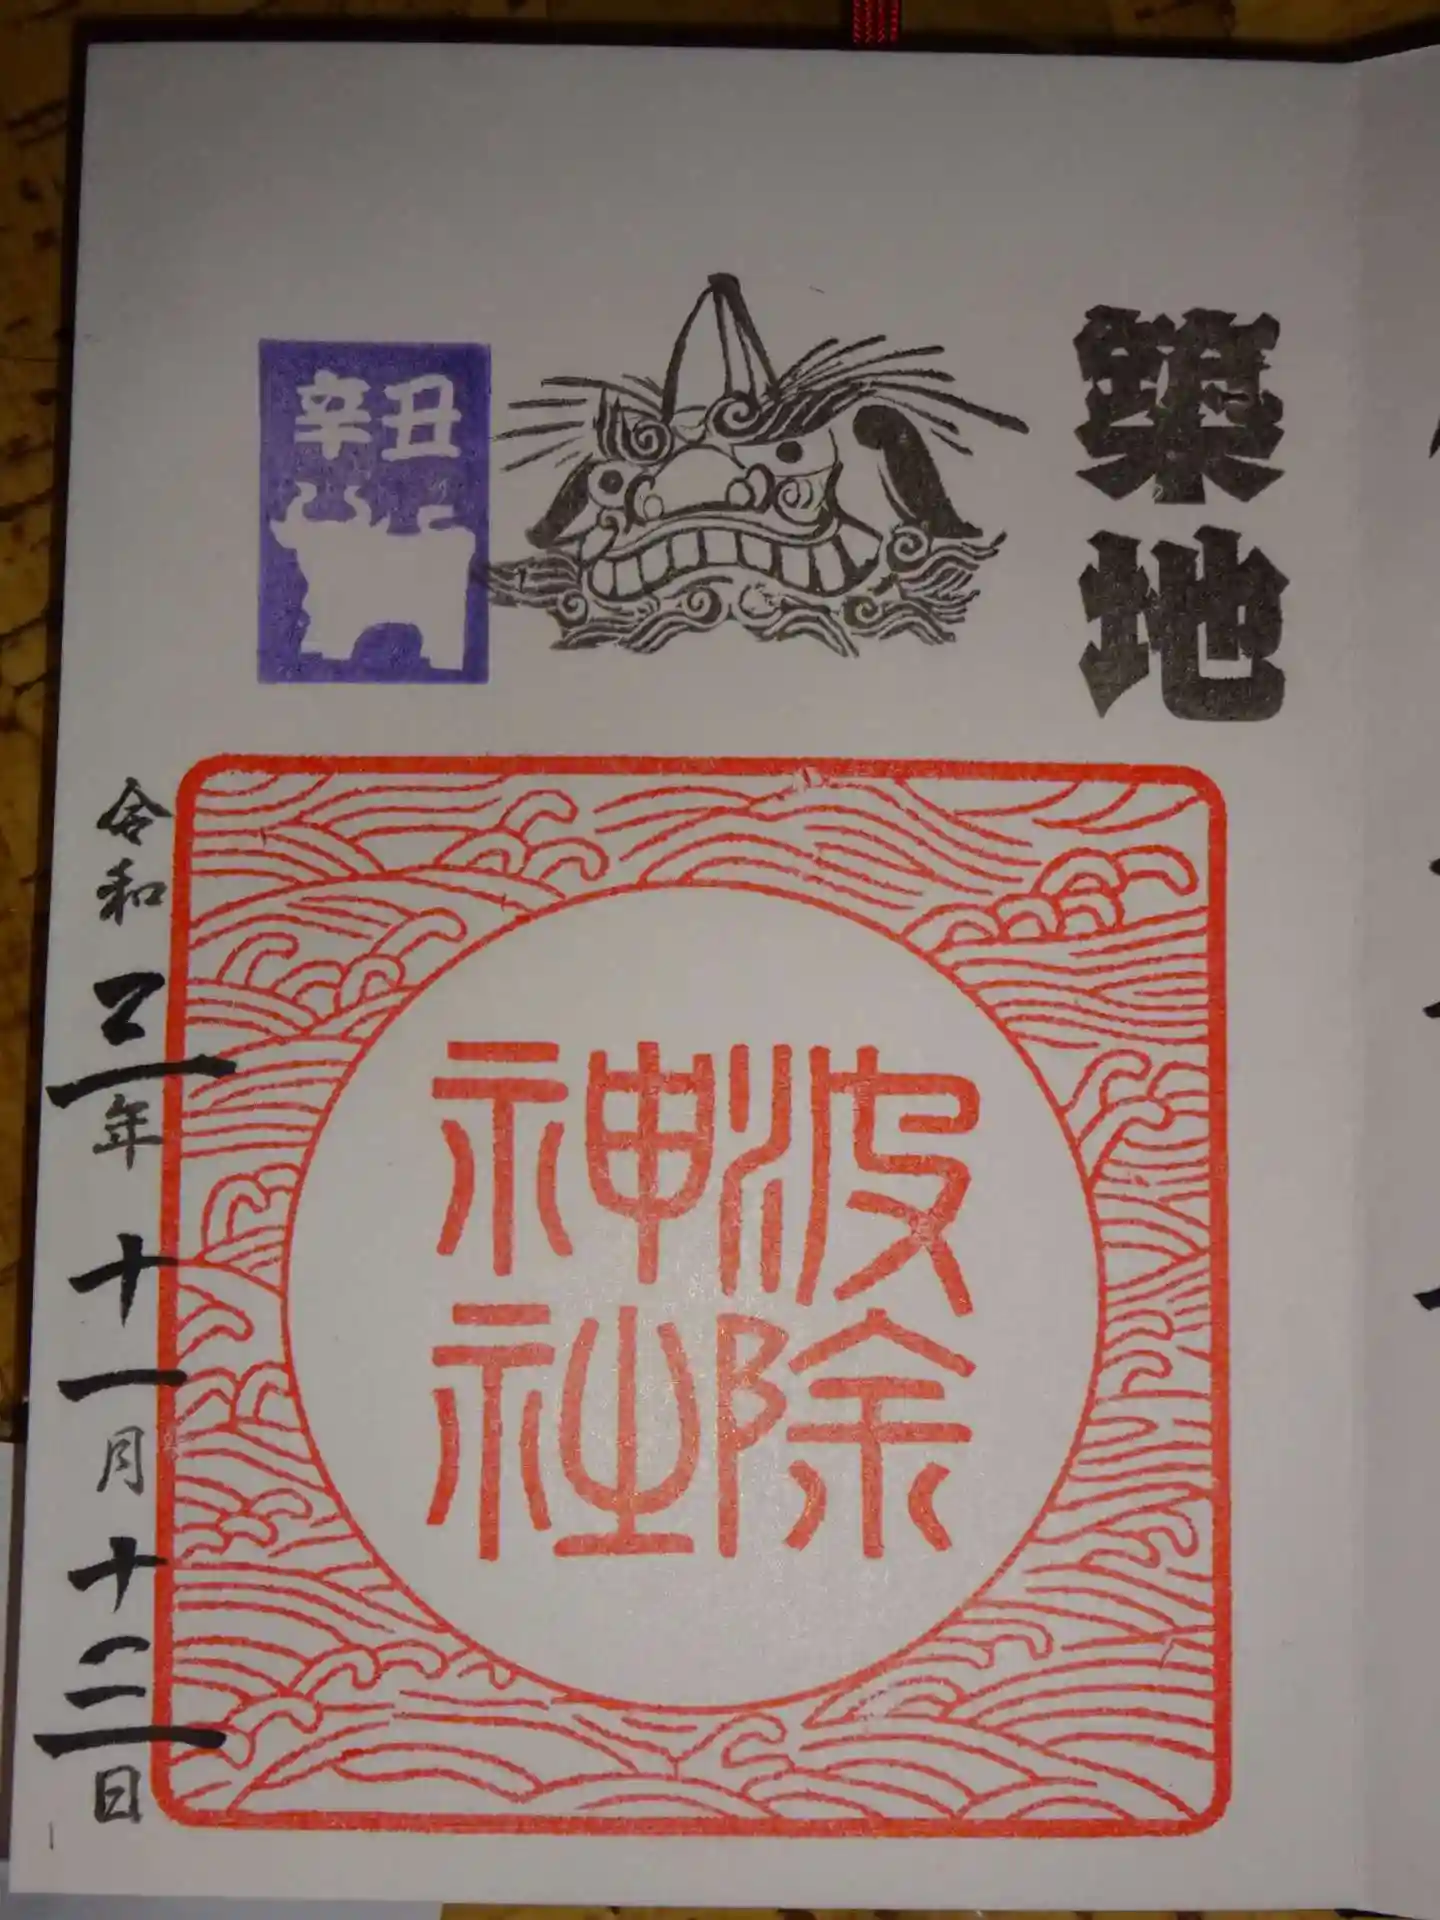 築地
波除
神社
辛丑
令和三年十一月十三日